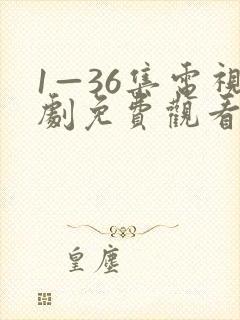 1—36集電視
劇免費觀看
皇塵